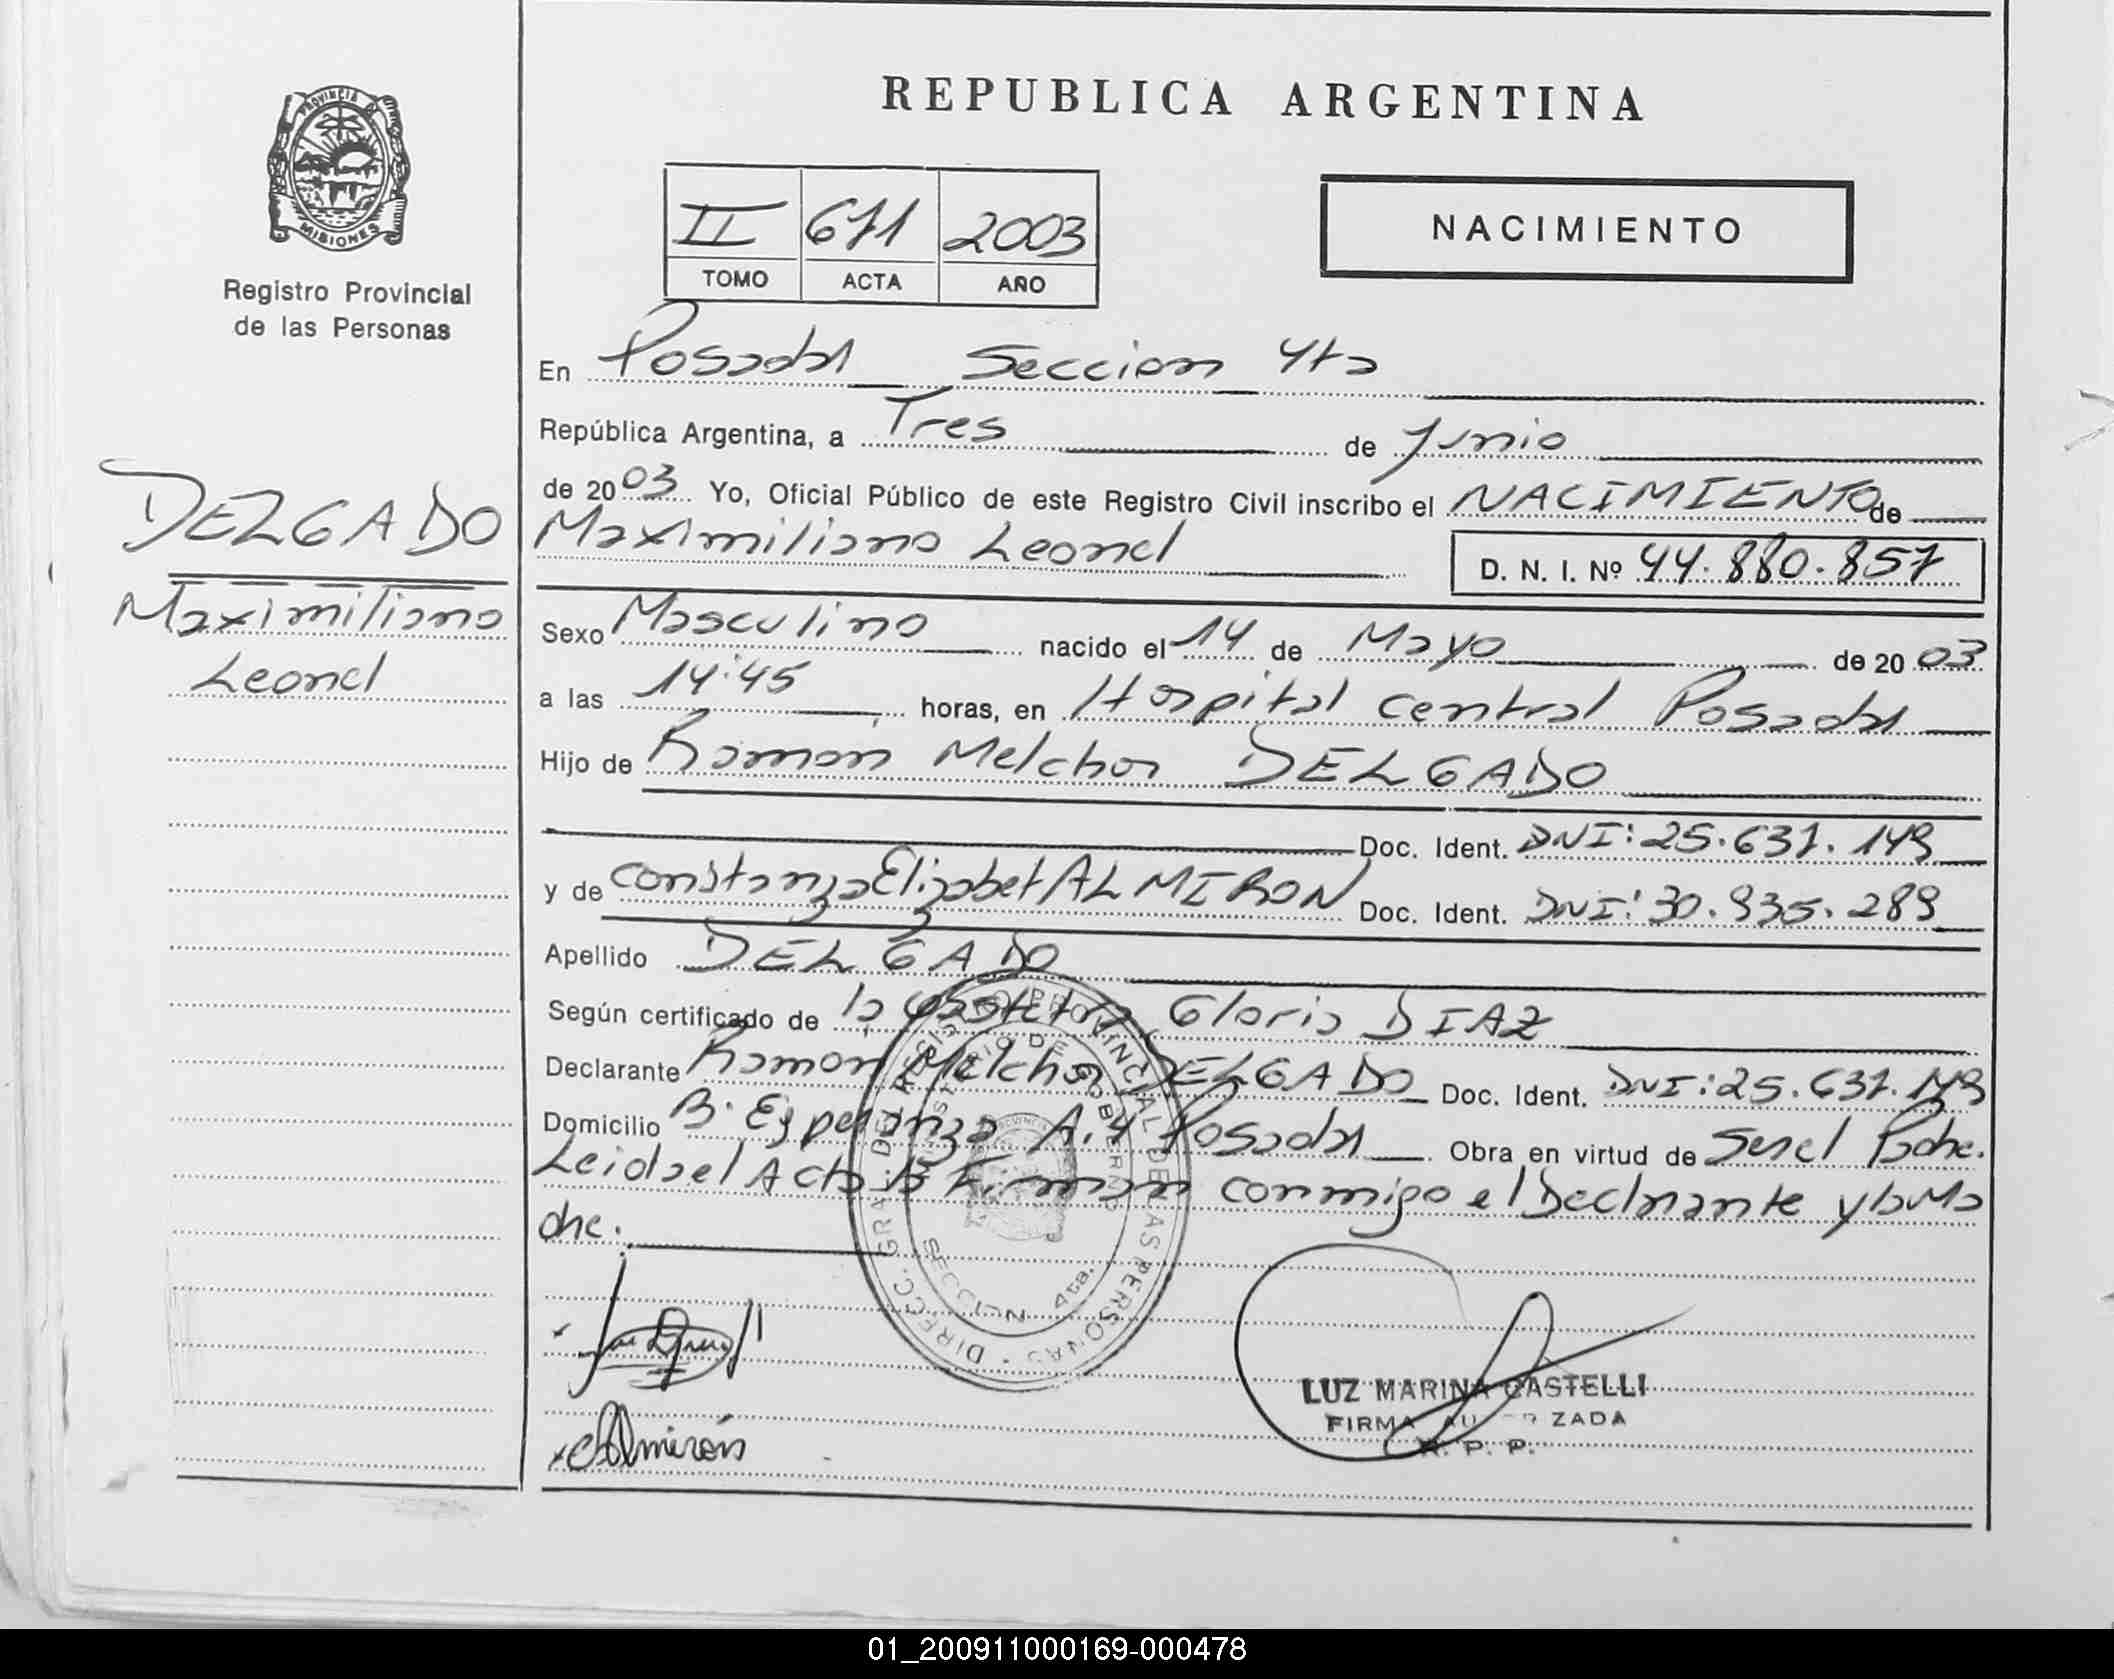 REPUBLICA ARGENTINA
PROVINCIA DE
MISIONES
Registro Provincial
de las Personas
II 671 2003
TOMO ACTA AÑO
NACIMIENTO
En Posadas Seccion 4ta
República Argentina, a Tres de Junio
de 2003 Yo, Oficial Público de este Registro Civil inscribo el NACIMIENTO de
DELGADO
Maximiliano Leonel
D. N. I. Nº 44.880.857
Maximiliano
Leonel
Sexo Masculino nacido el 14 de Mayo de 2003
a las 14:45 horas, en Hospital Central Posadas
Hijo de Ramon Melchor DELGADO
Doc. Ident. DNI: 25.637.149
y de Constanza Elizabet ALMIRON Doc. Ident. DNI: 30.935.289
Apellido DELGADO
Según certificado de la Obstetra Gloria DIAZ
Declarante Ramon Melchor DELGADO Doc. Ident. DNI: 25.637.149
Domicilio B. Esperanza A.4 Posadas Obra en virtud de Ser el Padre.
Leida el Acta la Firman conmigo el Declarante y la Ma
dre.
DIRECC. GRAL. DE REGISTRO PROVINCIAL DE LAS PERSONAS
MINISTERIO DE GOBIERNO
SECCION 4ta.
Almirón
LUZ MARINA CASTELLI
FIRMA AUTORIZADA
R. P. P.
01_200911000169-000478